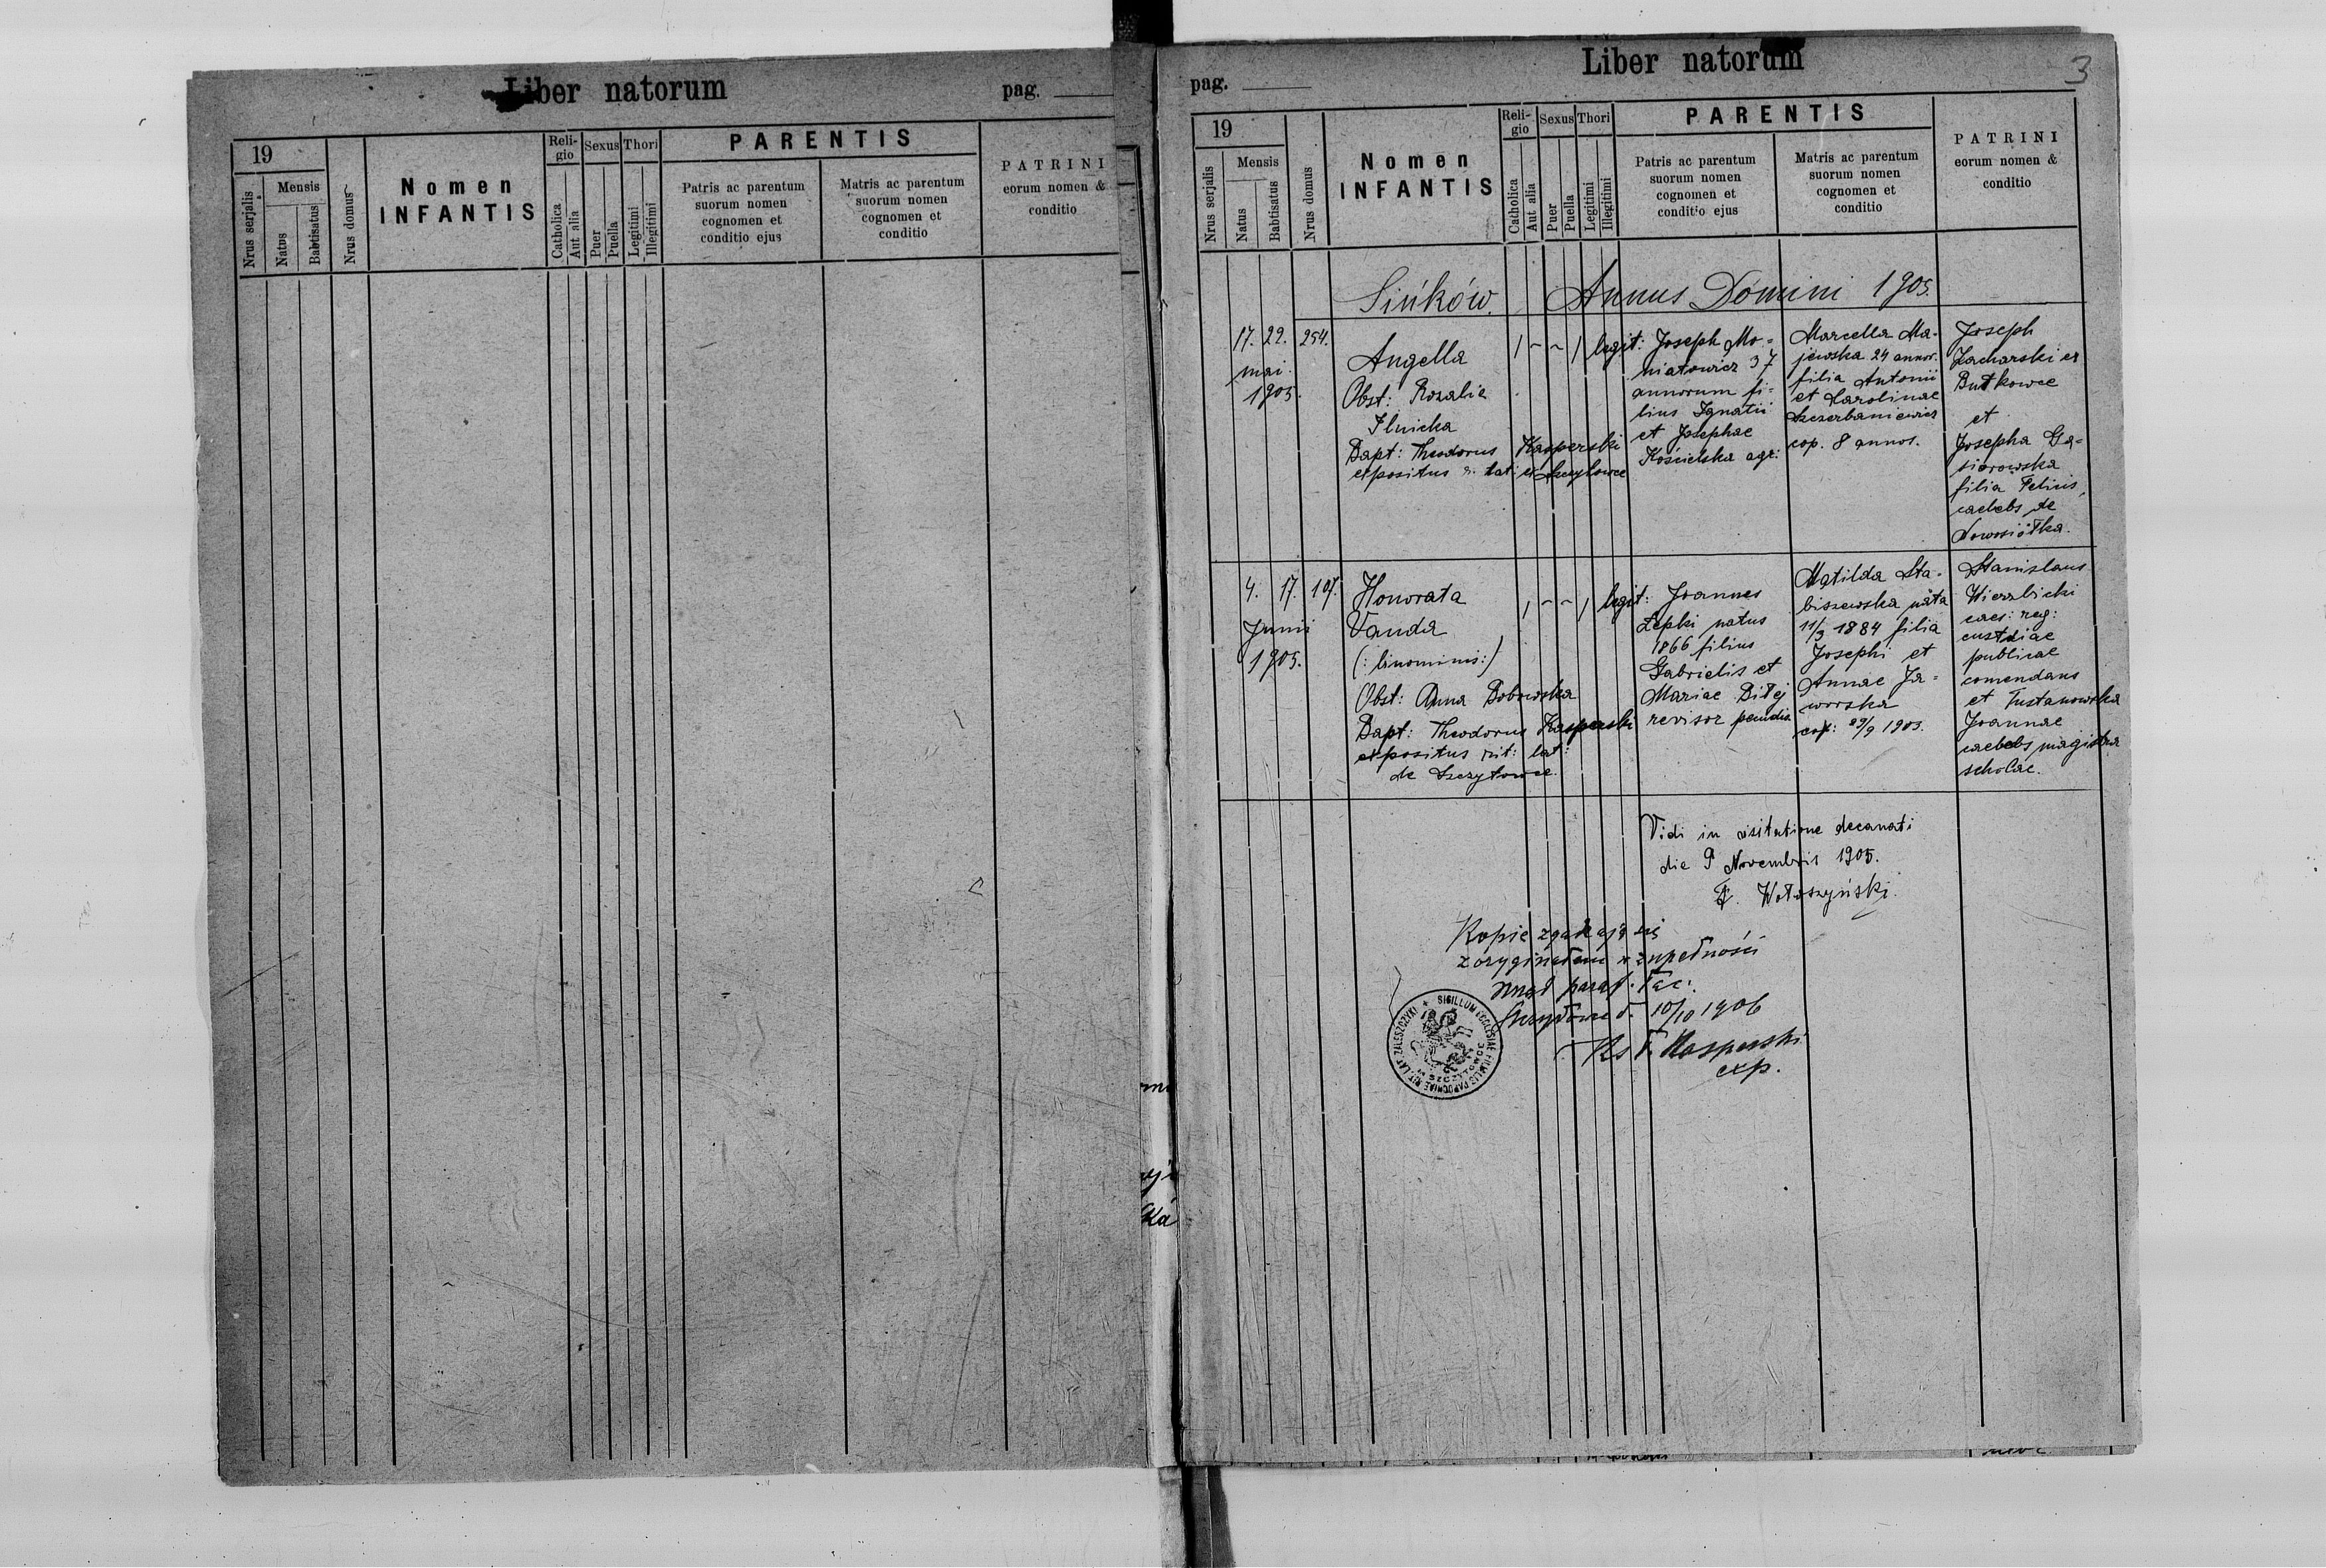 Liber natorum
pag.
19
Mensis
Nrus serjalis
Natus
Babtisatus
Nrus domus
Nomen
INFANTIS
Reli-
gio
Catholica
Aut alia
Sexus
Puer
Puella
Thori
Legitimi
Illegitimi
PARENTIS
Patris ac parentum
suorum nomen
cognomen et
conditio ejus
Matris ac parentum
suorum nomen
cognomen et
conditio
PATRINI
eorum nomen &
conditio
pag.
Liber natorum
3
19
Mensis
Nrus serjalis
Natus
Babtisatus
Nrus domus
Nomen
INFANTIS
Reli-
gio
Catholica
Aut alia
Sexus
Puer
Puella
Thori
Legitimi
Illegitimi
PARENTIS
Patris ac parentum
suorum nomen
cognomen et
conditio ejus
Matris ac parentum
suorum nomen
cognomen et
conditio
PATRINI
eorum nomen &
conditio
Sińków. Annus Domini 1905.
17. 22. 254.
mai
1905.
Angella
Obst: Rozalia
Ilnicka
Bapt: Theodorus Kasperski
expositus r. lat: ex Szczytowce
/ ~ ~ / legit:
Joseph Mo-
niatowicz 37
annorum fi-
lius Ignatii
et Josephae
Kościelska agr:
Marcella Ma-
jewska 24 annor.
filia Antonii
et Karolinae
Szczerbaniewicz
cop. 8 annos.
Joseph
Zacharski ex
Butkowce
et
Josepha Gą-
siorowska
filia Felicis,
caelebs de
Nowosiółka.
4. 17. 107.
Junii
1905.
Honorata
Vanda
(: binominis :)
Obst: Anna Bobowska
Bapt: Theodorus Kasperski
expositus rit: lat:
de Szczytowce.
/ ~ ~ / legit:
Joannes
Łepki natus
1866 filius
Gabrielis et
Mariae Diłej
revisor
Matilda Sta-
biszewska nata
11/3 1884 filia
Josephi et
Annae Ja-
worska
cop: 29/9 1903.
Stanislaus
Wierzbicki
caes: reg:
custdiae
publicae
comendans
et Tustanowska
Joannae
caelebs magistra
scholae.
Vidi in visitatione decanati
die 9 Novembris 1905.
F. Wołoszyński.
Kopie zgadzają się
z oryginałem w zupełności
Urząd paraf: łac:
Szczytowce d. 10/10 1906
Ks T. Kasperski
exp.
SIGILLUM ECCLESIAE FILIALIS PAROCHIAE RIT. LAT. ZALESZCZYKI
IN SZCZYTOWCE